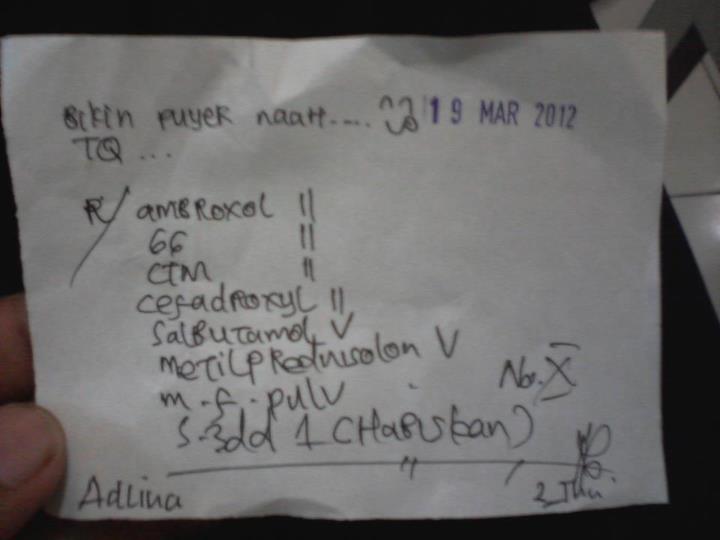 Bikin puyer naah.... 19 MAR 2012
TQ ...
R/ ambroxol II
GG II
CTM II
Cefadroxyl II
Salbutamol V
metilprednisolon V
m.f.pulv No. X
S.3dd 1 (Habiskan)
Adlina 2 Thn